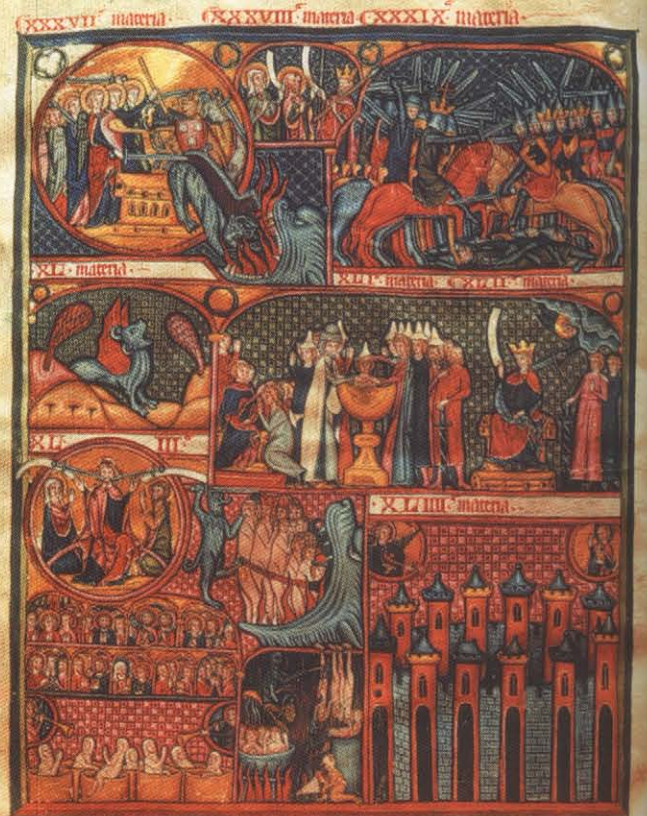 CXXXVII materia· CXXXVIII· materia· CXXXIX· materia·
XL· materia·
XLI· materia· CXLII· materia·
XL III·
XLIIII materia·